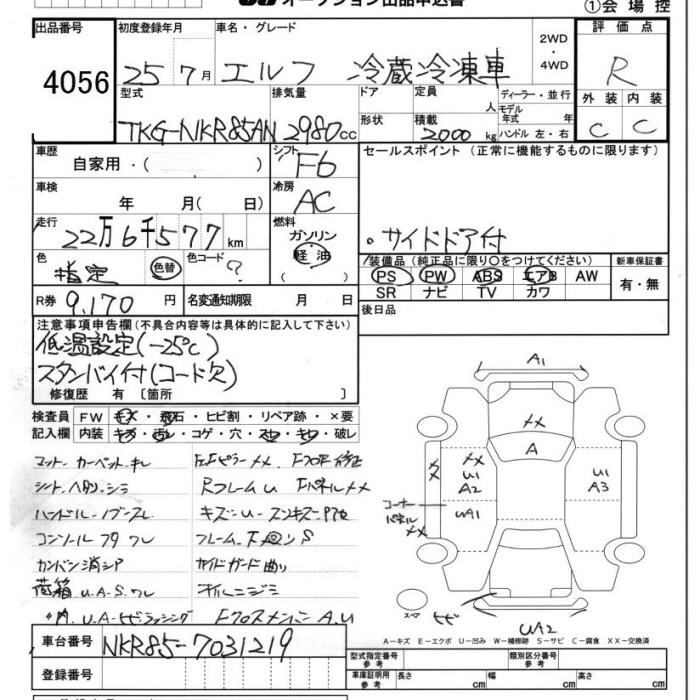 オークション出品申込書 ①会場控
出品番号 4056
初度登録年月 25年7月
車名・グレード エルフ 冷蔵冷凍車
2WD・4WD
評価点 R
型式 TKG-NKR85AN
排気量 2980cc
ドア 形状
定員 人 積載 2000kg
ディーラー・並行
モデル年式 年
ハンドル 左・右
外装 C 内装 C
車歴 自家用・( )
シフト F6
セールスポイント(正常に機能するものに限ります)
車検 年 月( 日)
冷房 AC
走行 22万6千577km
燃料 ガソリン 軽油 ( )
・サイドドア付
色 指定 色替 色コード ?
装備品(純正品に限り○をつけてください)
PS PW ABS エアB AW
SR ナビ TV カワ
新車保証書 有・無
R券 9,170円 名変通知期限 月 日
後日品
注意事項申告欄(不具合内容等は具体的に記入して下さい)
低温設定(-25℃)
スタンバイ付(コード欠)
修復歴 有〔箇所 〕
検査員記入欄 FW キズ・飛石・ヒビ割・リペア跡・×要
内装 キズ・汚レ・コゲ・穴・スレ・キレ・破レ
マット、カーペットキレ
シート、ヘタリ、シミ
RフレームU FパネルXX
ハンドル
コンソール
カンバン消シア
サイドガード曲り
荷箱 U.A.S.ワレ
オイルニジミ
A.U
A1
XX
A
XX
XX
U1
A2
UA1
U1
A3
コーナーパネルXX
スペア
ヒビ
UA2
A-キズ E-エクボ U-凹み W-補修跡 S-サビ C-腐食 XX-交換済
車台番号 NKR85-7031219
登録番号
型式指定番号 参考
類別区分番号 参考
車庫証明用 参考 長さ cm 幅 cm 高さ cm